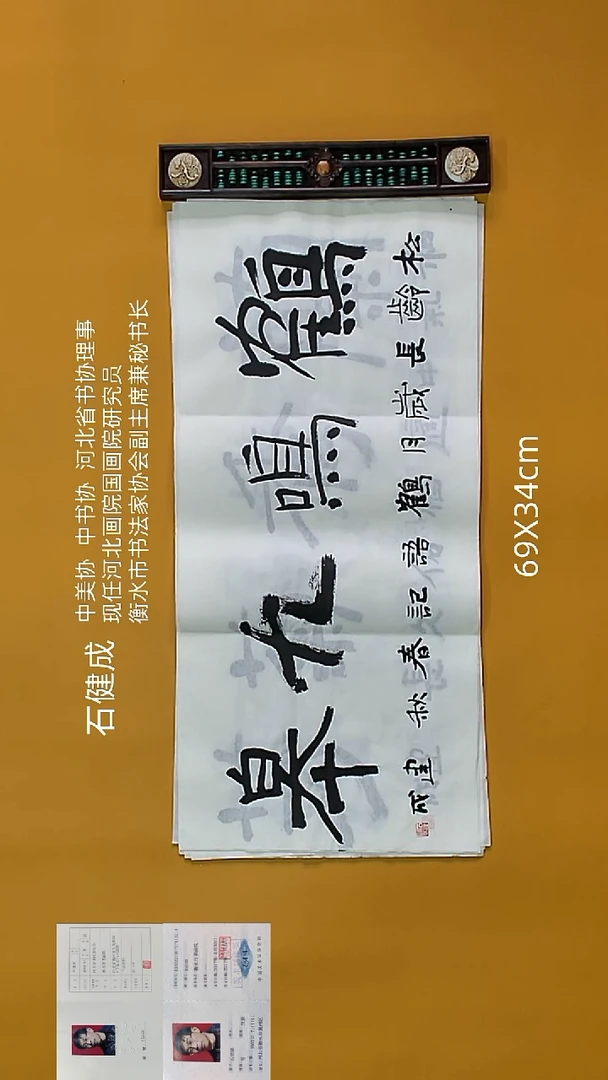 石健成
中美协 中书协 河北省书协理事
现任河北画院国画院研究员
衡水市书法家协会副主席兼秘书长
鶴鳴九皋
松齡長歲月鶴語記春秋 建成
69X34cm